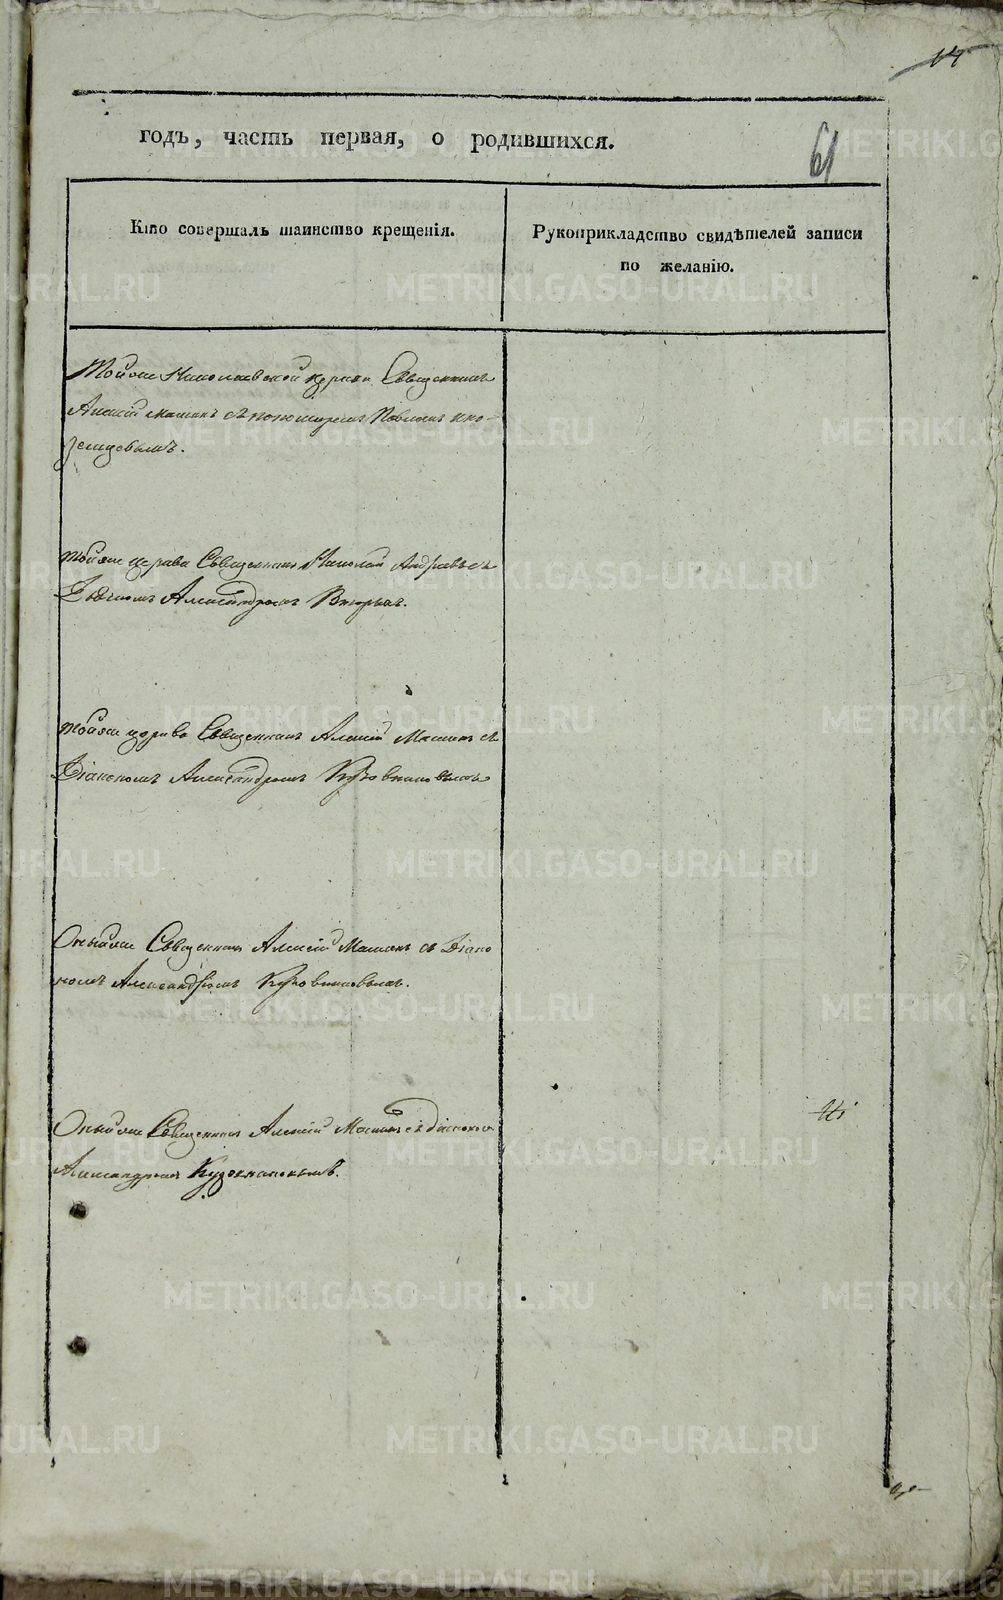 14
годъ, часть первая, о родившихся.
61
Кто совершалъ таинство крещенія.
Рукоприкладство свидѣтелей записи
по желанію.
Тойже Николаевской церкви Священникъ
Алексій Машинъ съ пономаремъ Павломъ Ино-
земцовымъ.
Тойже церкви Священникъ Николай Андреевъ съ
Александромъ
Тойже церкви Священникъ Алексій Машинъ съ
Діакономъ Александромъ Кузовниковымъ
Онытже Священникъ Алексій Машинъ съ Діако
номъ Александромъ Кузовниковымъ.
Онытже Священникъ Алексій Машинъ съ діакономъ
Александромъ Кузовниковымъ.
METRIKI.GASO-URAL.RU